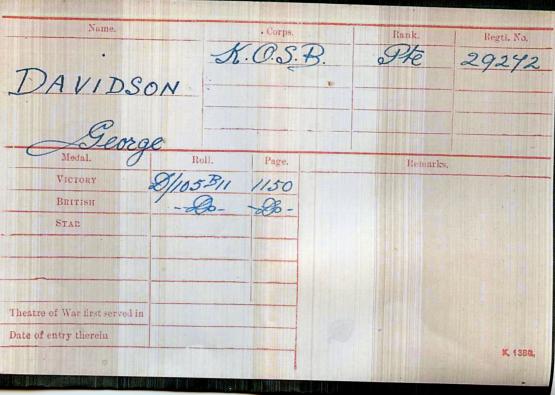 Name. Corps. Rank. Regtl. No.
K.O.S.B. Pte 29242
DAVIDSON
George
Medal. Roll. Page. Remarks.
VICTORY D/105B11 1150
BRITISH -Do- -Do-
STAR
Theatre of War first served in
Date of entry therein
K. 1380.